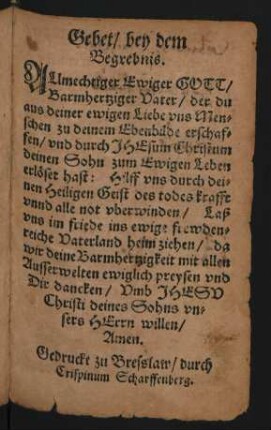 Gebet/ bey dem
Begrebnis.
ALlmechtiger Ewiger GOTT/
Barmhertziger Vater/ der du
aus deiner ewigen Liebe vns Men-
schen zu deinem Ebenbilde erschaf-
fen/ vnd durch JHEsum Christum
deinen Sohn zum Ewigen Leben
erlöset hast: Hilff vns durch dei-
nen Heiligen Geist des todes krafft
vnnd alle not vberwinden/ Laß
vns im friede ins ewige frewden-
reiche Vaterland heim ziehen/ da
wir deine Barmhertzigkeit mit allen
Ausserwelten ewiglich preysen vnd
Dir dancken/ Vmb JHESV
Christi deines Sohns vn-
sers HErrn willen/
Amen.
Gedruckt zu Bresslaw/ durch
Crispinum Scharffenberg.